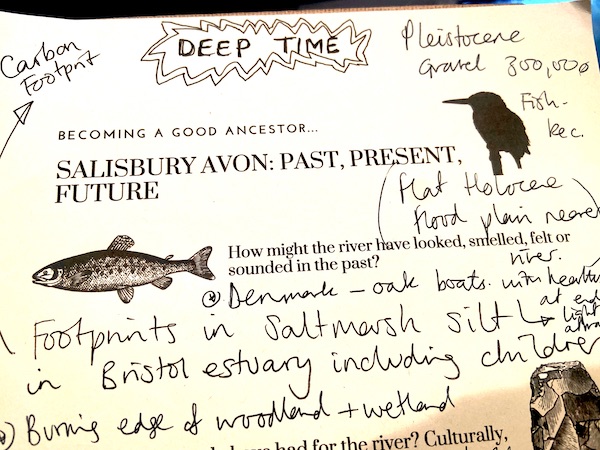 Carbon
Footprint
DEEP TIME
Pleistocene
Gravel 300,000
Fish-
BECOMING A GOOD ANCESTOR...
SALISBURY AVON: PAST, PRESENT,
FUTURE
(Flat Holocene
flood plain nearer
river.)
How might the river have looked, smelled, felt or
sounded in the past?
Denmark – oak boats. with hearths
at end
light
Footprints in Saltmarsh silt
in Bristol estuary including children
Burning edge of woodland + wetland
had for the river? Culturally,